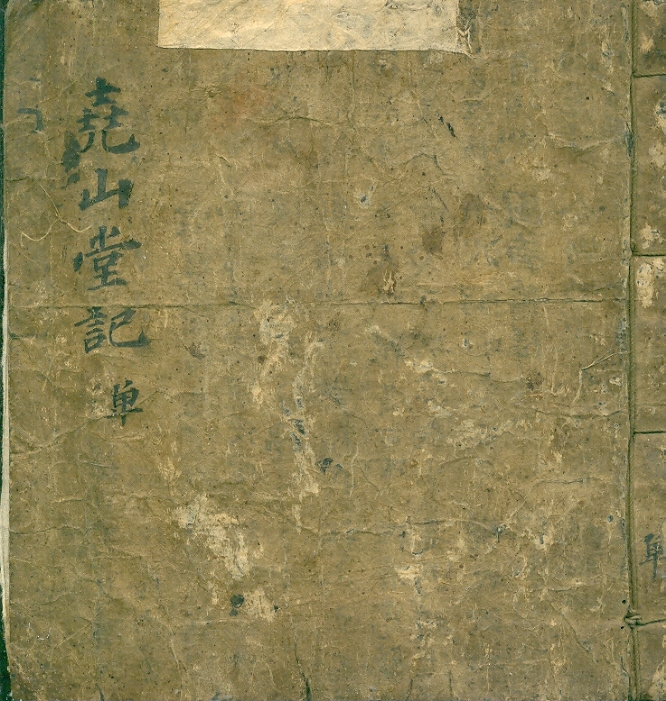 堯山堂記 単